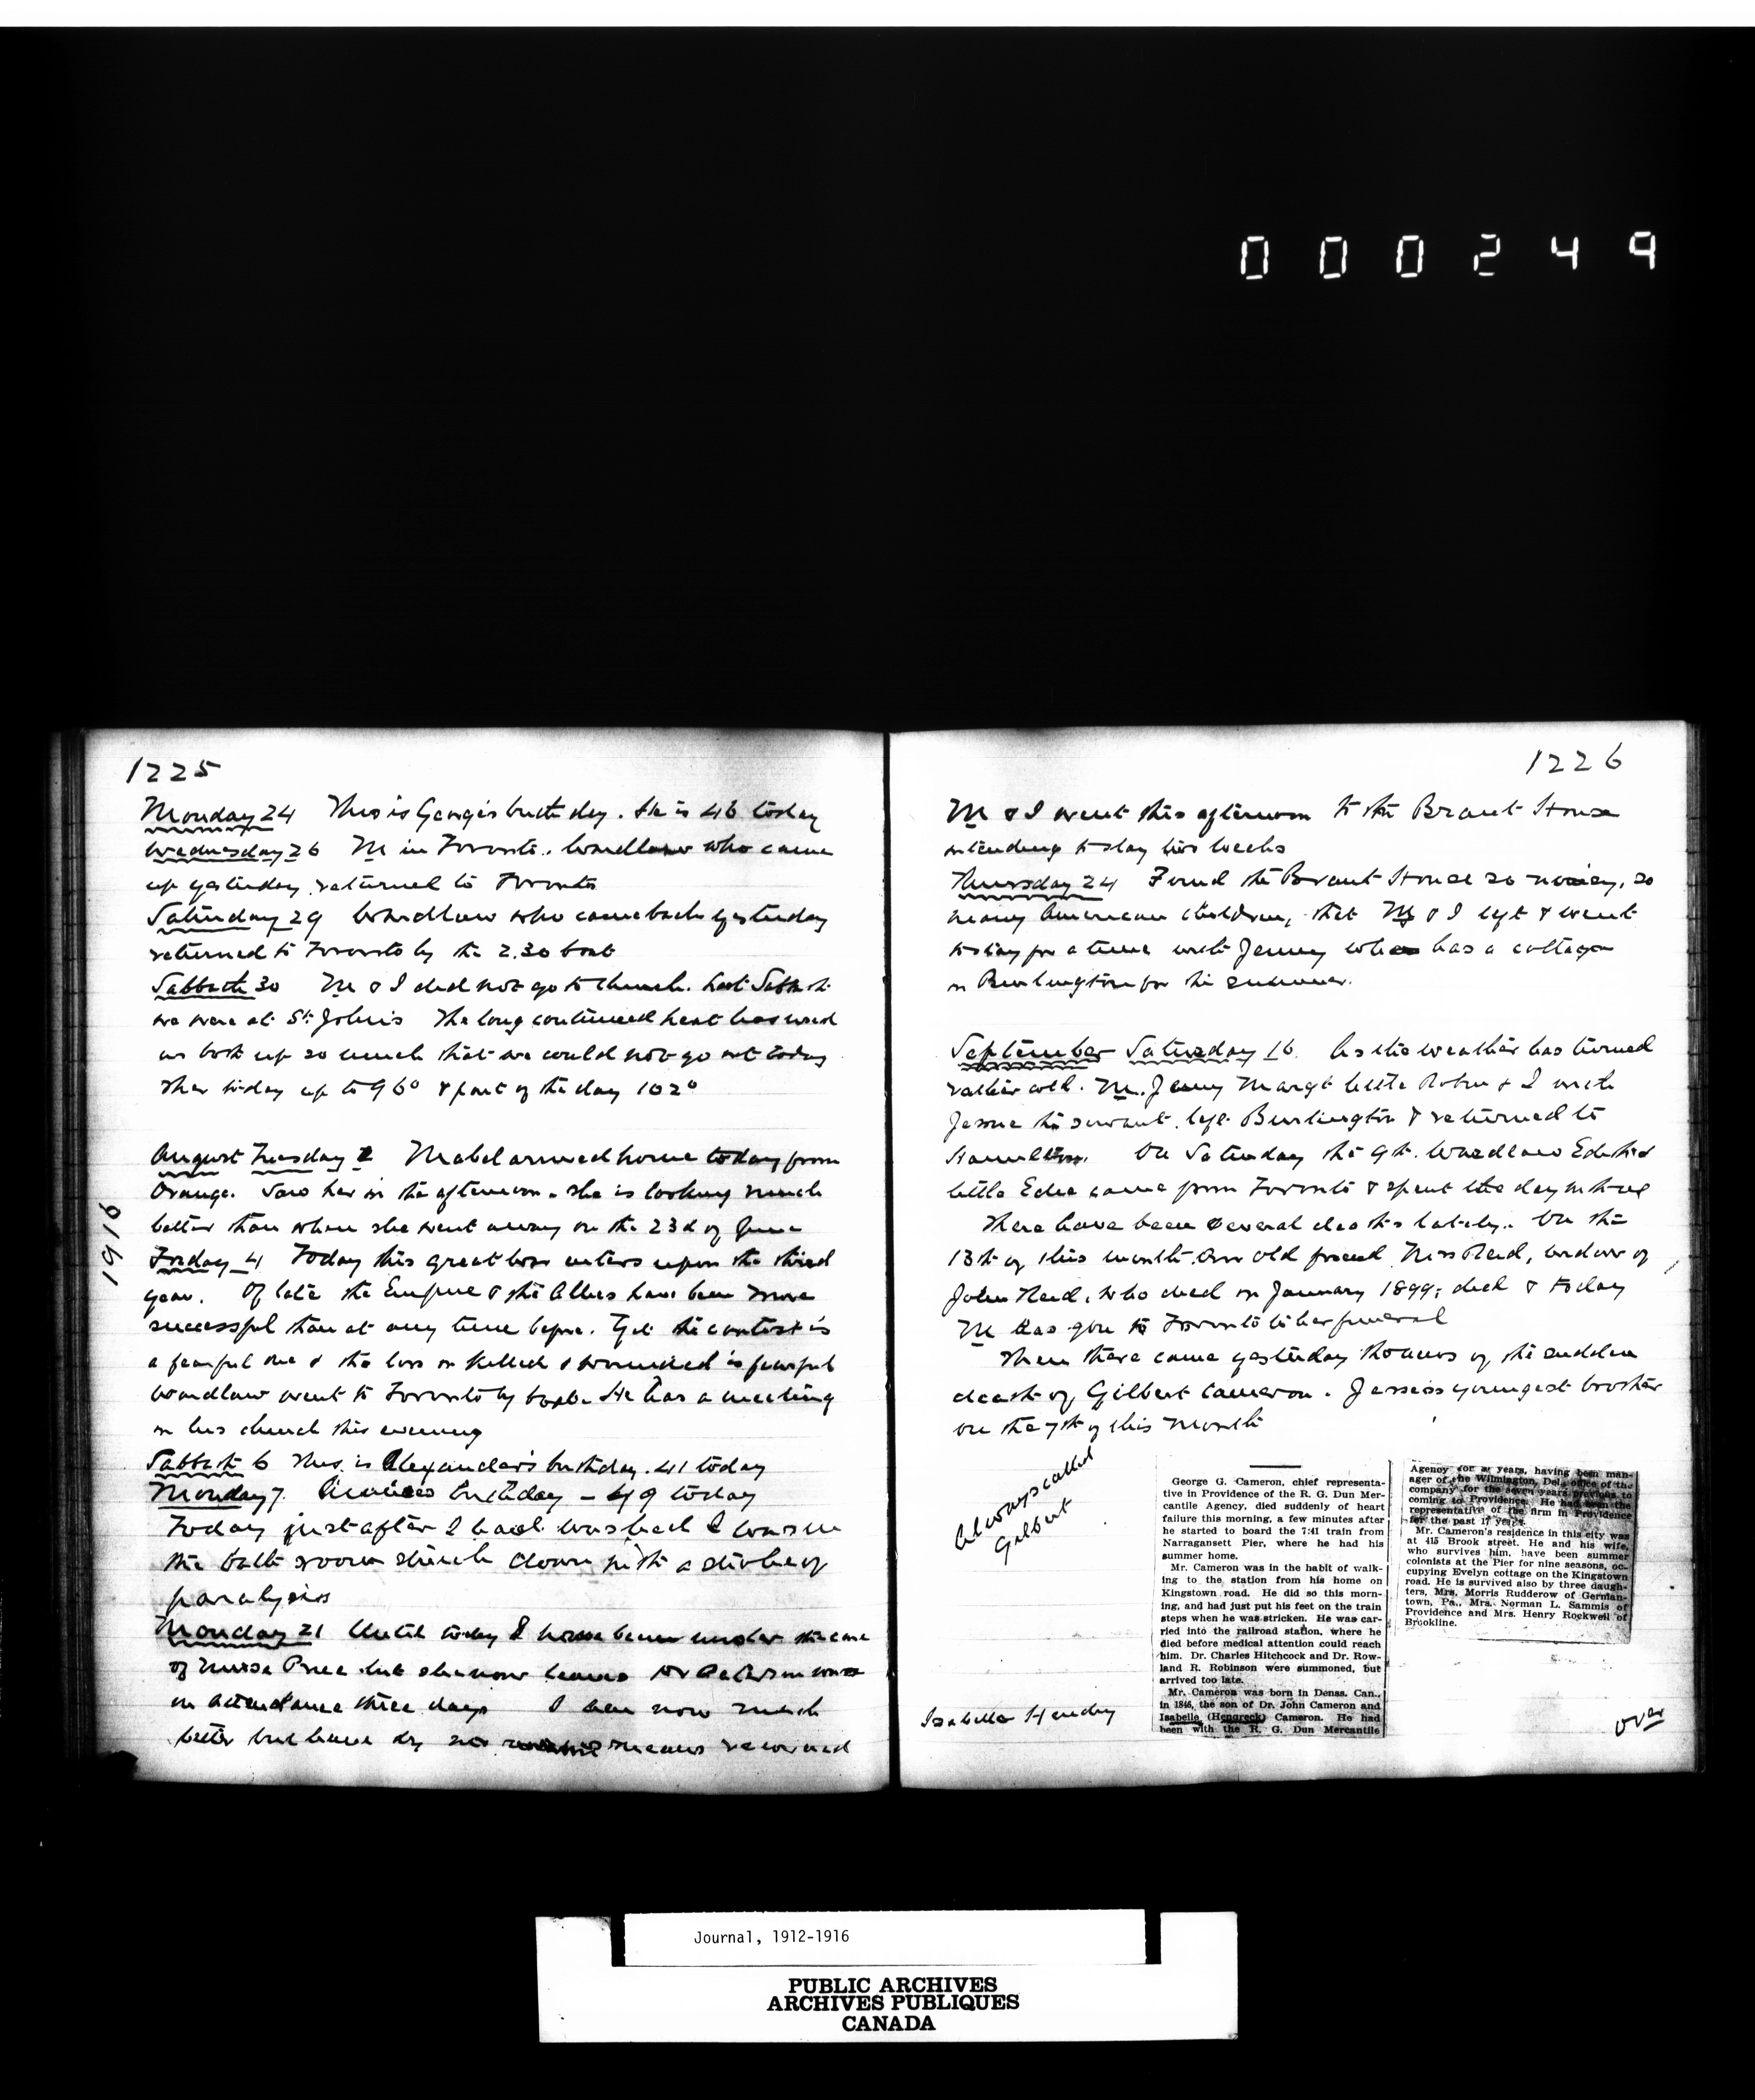 000249
1225
Monday 24 This is George's birthday. He is 46 today
Wednesday 26 M in Toronto. Wardlaw who came
up yesterday returned to Toronto
Saturday 29 Wardlaw who came back yesterday
returned to Toronto by the 2.30 boat
Sabbath 30 M & I did not go to Church. Last Sabbath
we were at St John's The long continued heat has used
us both up so much that we could not go out today
Ther today up to 96° & part of the day 102°
August Tuesday 2 Mabel arrived home today from
Orange. Saw her in the afternoon. She is looking much
better than when she went away on the 23d of June
1916
Friday 4 Today this great war enters upon the third
year. Of late the Empire & the Allies have been more
successful than at any time before. Yet the contest is
a fearful one & the loss in killed & wounded is fearful
Wardlaw went to Toronto by boat. He has a meeting
in his church this evening
Sabbath 6 This is Alexander's birthday. 41 today
Monday 7. birthday - 49 today
Today just after I had washed & was in
the bath room struck down with a stroke of
paralysis
Monday 21 Until today I have been under the care
of Nurse Price but she now leaves Dr was
in attendance three days I am now much
better but have by no means recovered
1226
M & I went this afternoon to the Brant House
intending to stay two weeks
Thursday 24 Found the Brant House so noisy, so
many American children, that M & I left & went
to stay for a time with Jenny who has a cottage
in Burlington for the summer.
September Saturday 16. As the weather has turned
rather cold. M. Jenny Margt little Robin & I with
Jessie the servant left Burlington & returned to
Hamilton. On Saturday the 9th. Wardlaw Edith &
little Edie came from Toronto & spent the day with us
There have been several deaths lately. On the
13th of this month Our old friend Mrs Reid, widow of
John Reid, who died in January 1899, died & today
M has gone to Toronto to her funeral
Then there came yesterday the news of the sudden
death of Gilbert Cameron. Jessie's youngest brother
on the 7th of this month
Always called
Gilbert
George G. Cameron, chief representa-
tive in Providence of the R. G. Dun Mer-
cantile Agency, died suddenly of heart
failure this morning, a few minutes after
he started to board the 7:41 train from
Narragansett Pier, where he had his
summer home.
Mr. Cameron was in the habit of walk-
ing to the station from his home on
Kingstown road. He did so this morn-
ing, and had just put his feet on the train
steps when he was stricken. He was car-
ried into the railroad station, where he
died before medical attention could reach
him. Dr. Charles Hitchcock and Dr. Row-
land R. Robinson were summoned, but
arrived too late.
Mr. Cameron was born in Denss. Can.,
in 1846, the son of Dr. John Cameron and
Isabelle (Hengreck) Cameron. He had
been with the R. G. Dun Mercantile
Agency for years, having been man-
ager of the Wilmington, Del., office of the
company for the seven years previous to
coming to Providence. He had been the
representative of the firm in Providence
for the past 17 years.
Mr. Cameron's residence in this city was
at 415 Brook street. He and his wife,
who survives him, have been summer
colonists at the Pier for nine seasons, oc-
cupying Evelyn cottage on the Kingstown
road. He is survived also by three daugh-
ters, Mrs. Morris Rudderow of German-
town, Pa., Mrs. Norman L. Sammis of
Providence and Mrs. Henry Rockwell of
Brookline.
Isabella Hendry
over
Journal, 1912-1916
PUBLIC ARCHIVES
ARCHIVES PUBLIQUES
CANADA